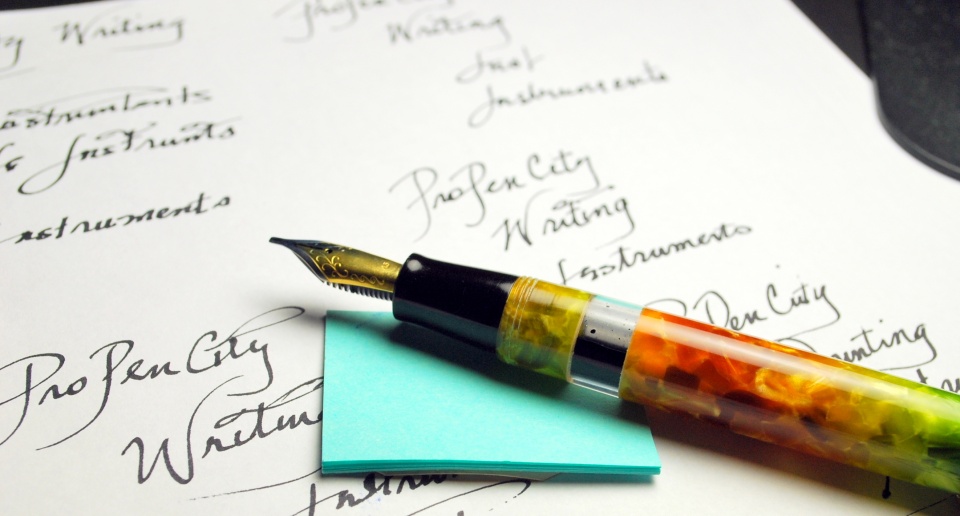 Writing
InsTrunts
nstruments
ProPen City
Writing
Inst
Instruments
ProPen City
Writing
Instruments
Pen City
ProPen City
Writin
Instru